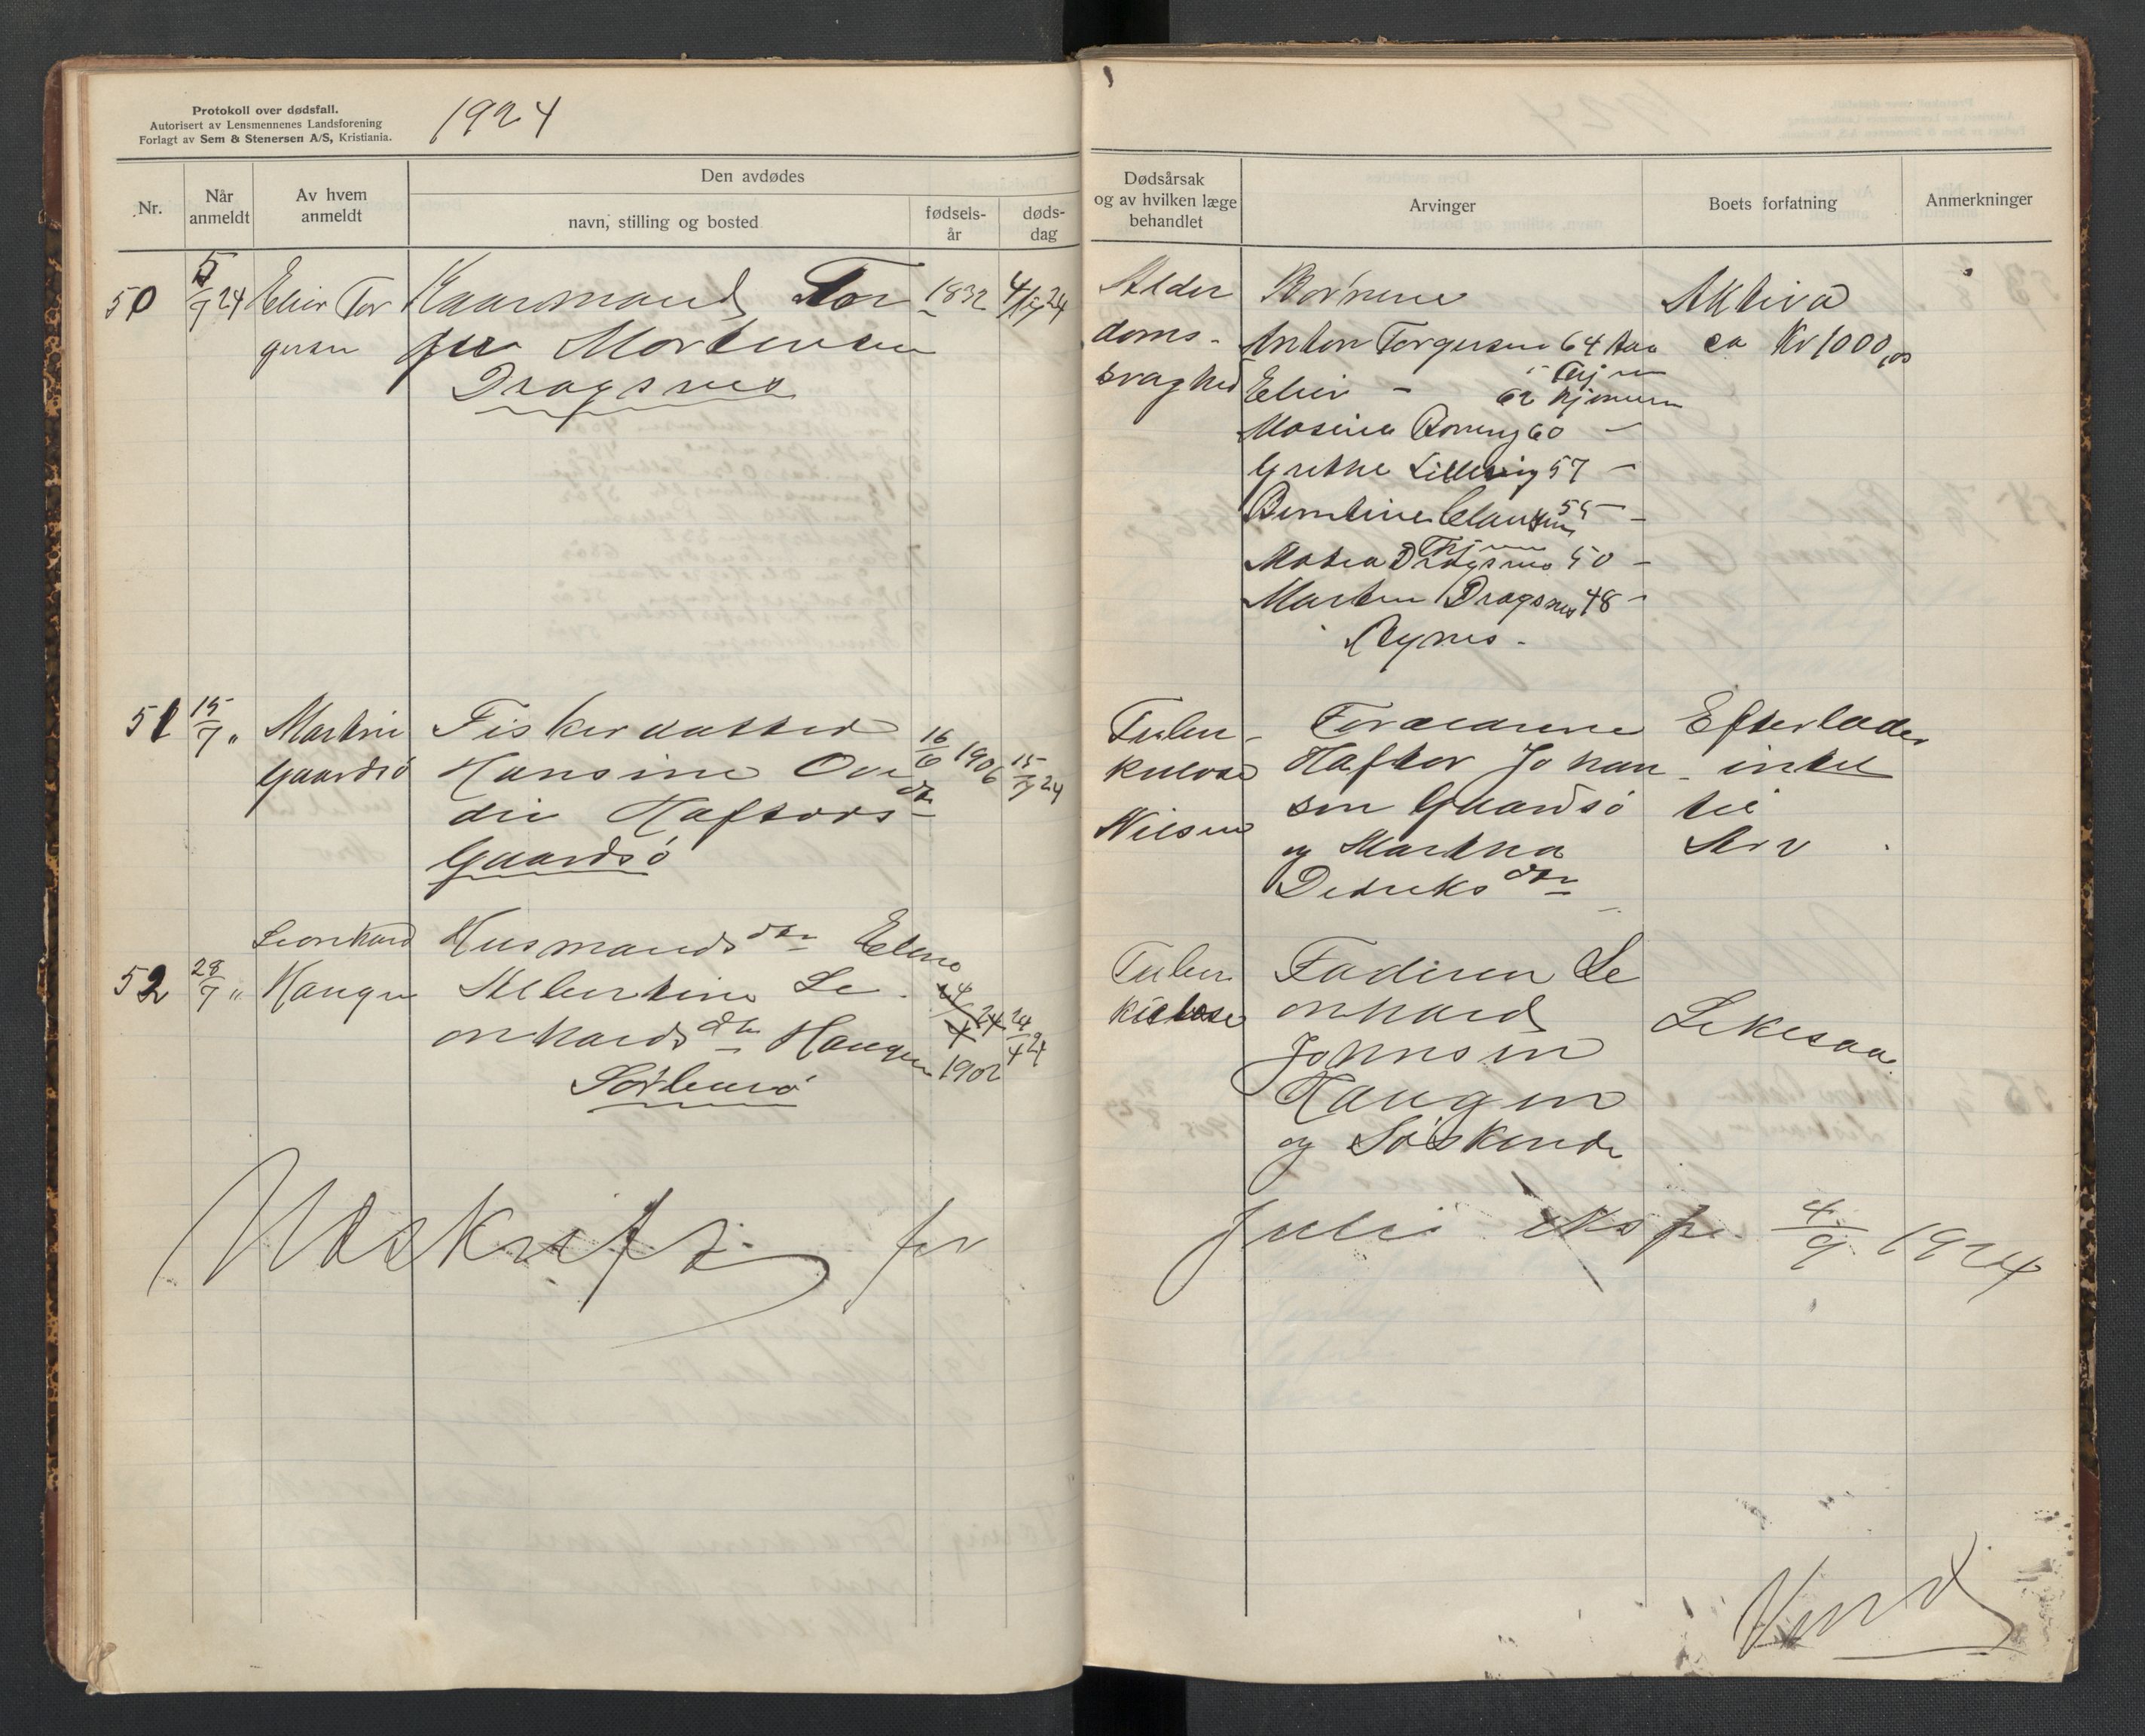 Protokoll over dødsfall.
Autorisert av Lensmennenes Landsforening
Forlagt av Sem & Stenersen A/S, Kristiania.
1924
Nr.
Når anmeldt
Av hvem anmeldt
Den avdødes
navn, stilling og bosted
fødsels-år
døds-dag
Dødsårsak og av hvilken læge behandlet
Arvinger
Boets forfatning
Anmerkninger
50
5/7 24
Eliir Tor
gersen
Kaarmand Tor
ger Mortensen
Dragsnes
1832
4/7 24
Alder
doms-
svaghed
Børnene
Anton Torgersen 64 Aar
Eliir - 62 hjemme
Mosina 60 -
Grethe Lillevig 57 -
Berntine Clausen 55 -
Dragsnes 50 -
Morten Dragsnes 48 -
Rynes.
Aktiva
ca Kr 1000,00
51
15/7 "
Martin
Gaardsø
Fiskerdatter
Hansine Ove
die Haftorsdtr
Gaardsø
16/6 1906
15/7 24
Tuber-
kulose
Nilsen
Forældrene
Haftor Johan-
sen Gaardsø
og Martha
Dedriksdtr
Efterlader
intet
til
Arv
52
28/7 "
Leonhard
Haugen
Husmandsdtr Elen
Albertine Le-
onhardsdtr Haugen
Sørlensø
24/4 24
1902
24/4 24
Tuber
kulose
Faderen Le
onhard
Johnsen
Haugen
og Søskende
Likesaa
Utskrift for
Juli eksp. 4/9 1924
Vend